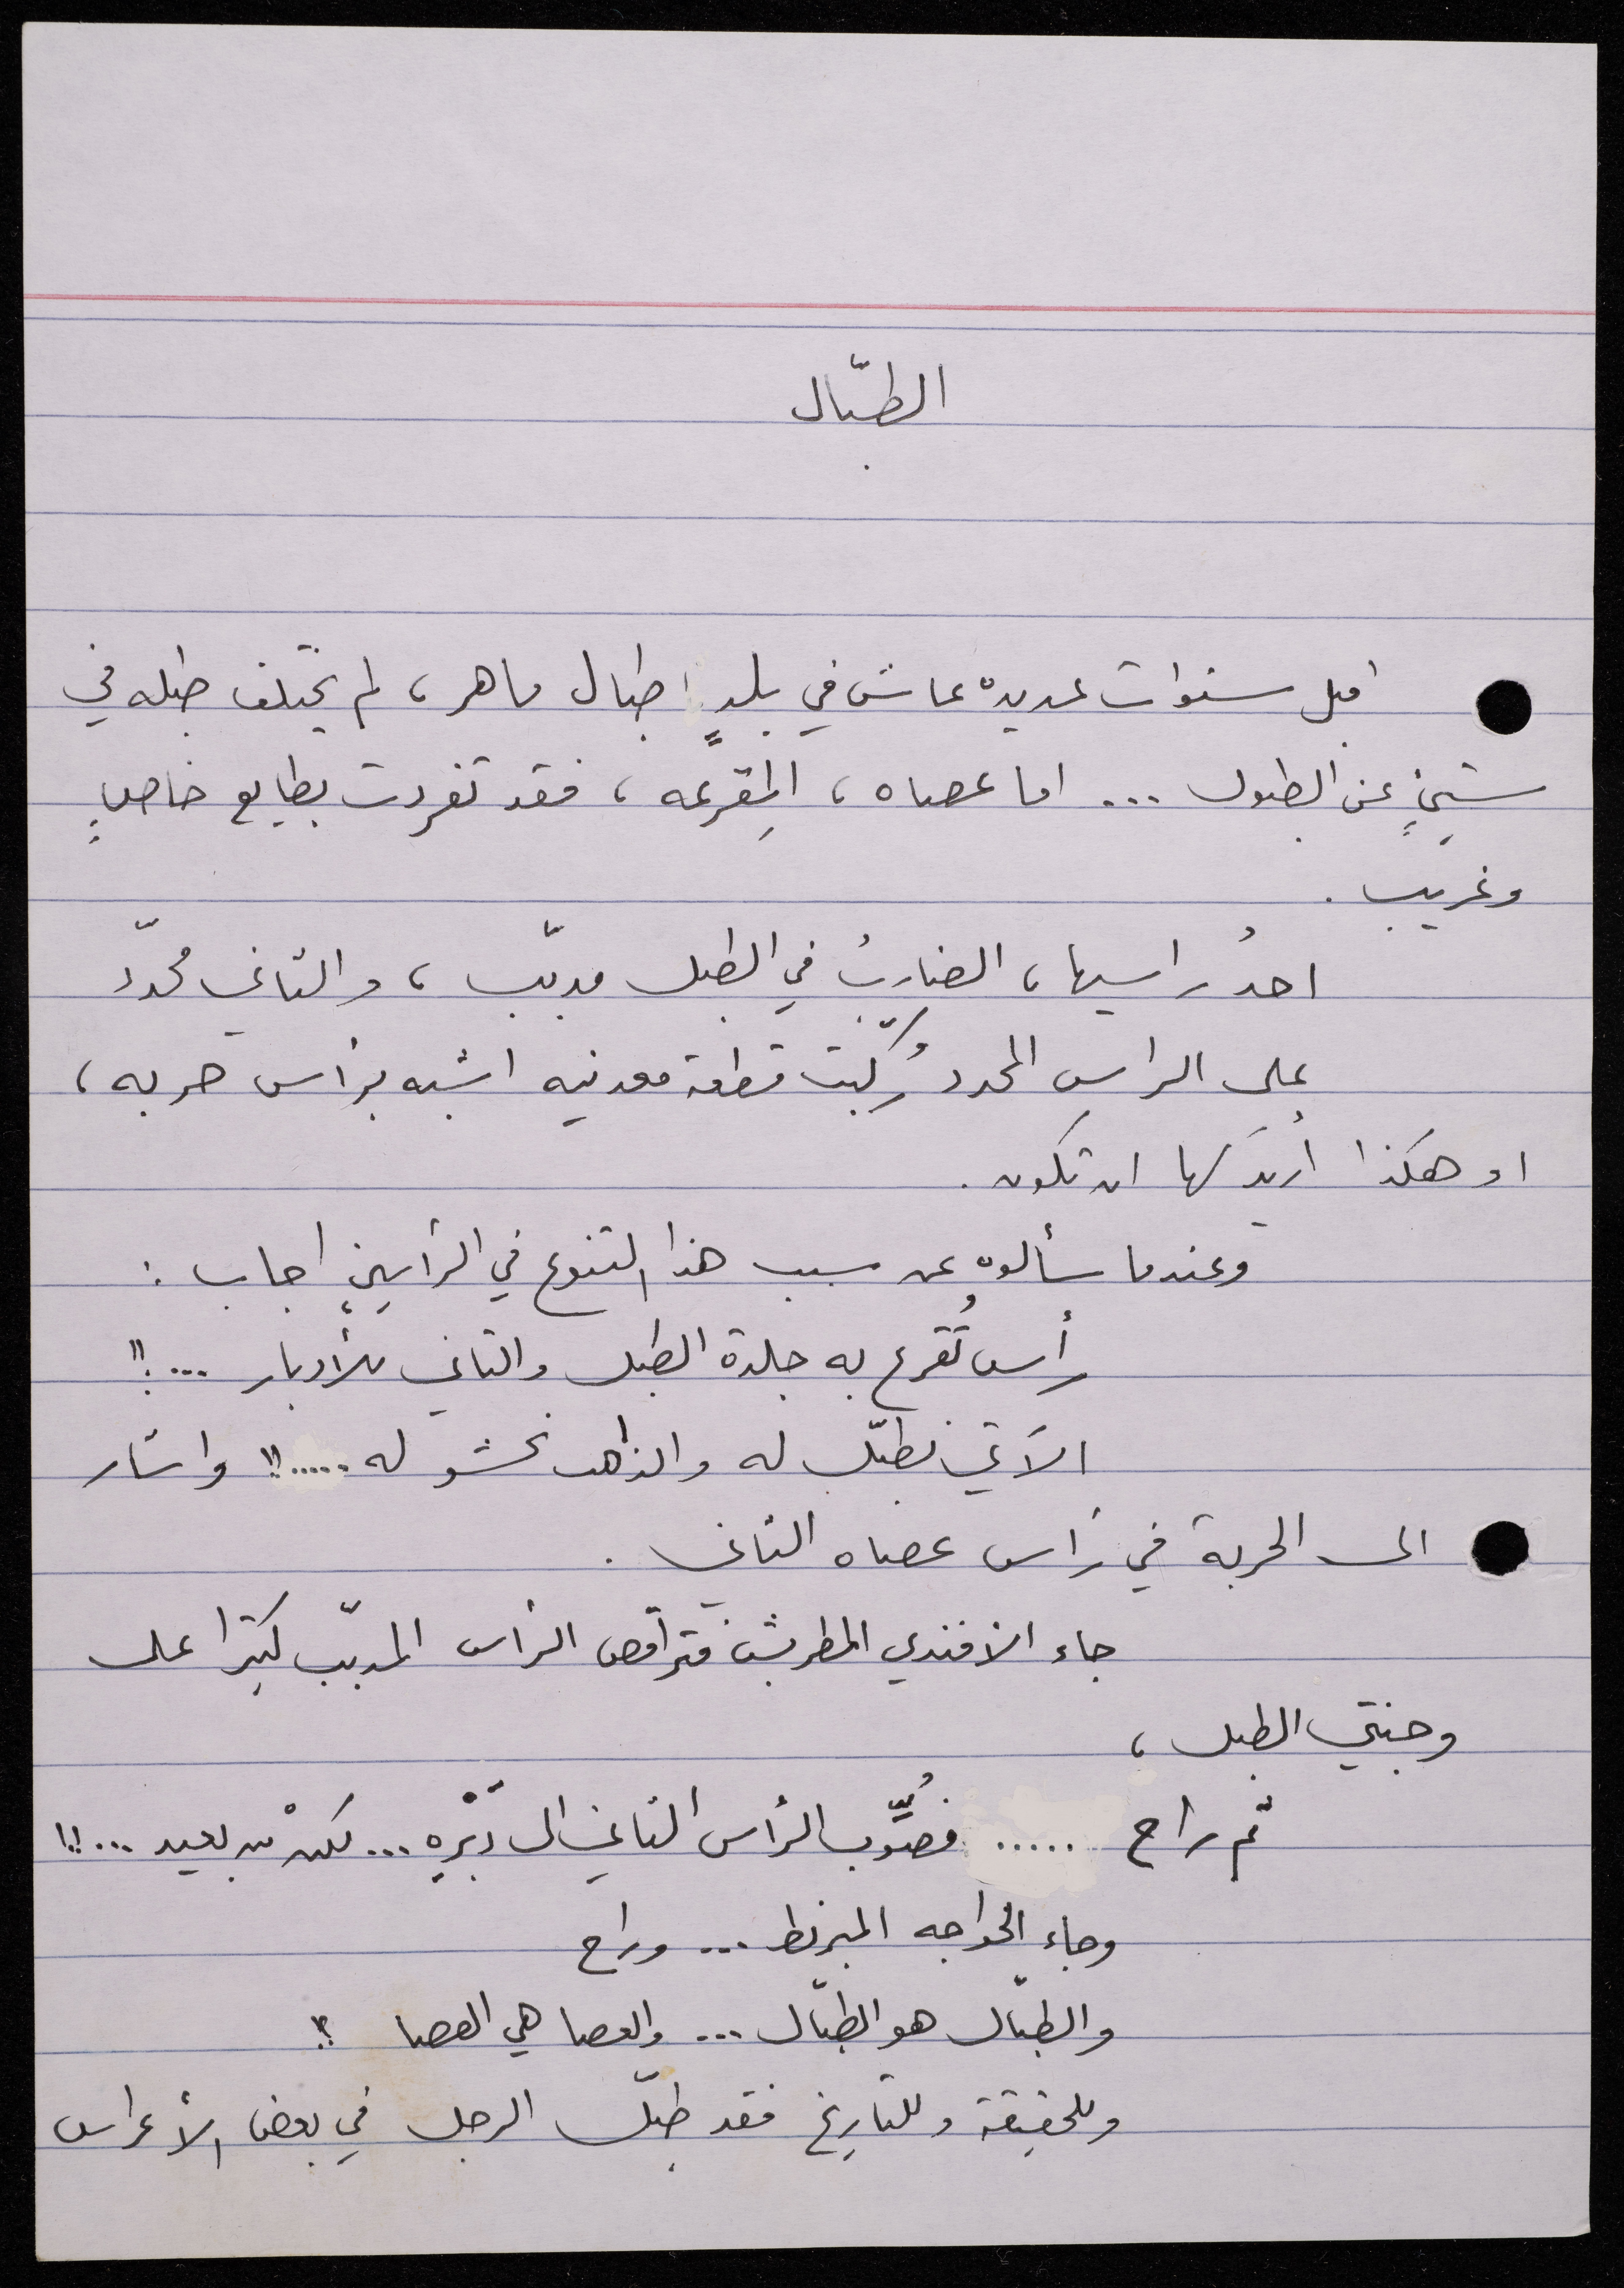 الطبّال
قبل سنوات عديده عاش في بلدٍ طبال ماهر، لم يختلف طبله في
شيءٍ عن الطبول ... اما عصاه، المِقرعه، فقد تفردت بطابع خاصٍ
وغريب.
احدُ راسيها، الضاربُ في الطبل مدبّب، والثاني محدّد
على الراسِ المحدد رُكّبت قطعة معدنيه اشبه برأس حربه،
او هكذا أُريدَ لها ان تكون.
وعندما سألوه عن سبب هذا التنوع في الرأسين اجاب :
رأس تُقرع به جلدة الطبل والثاني للأدبار ...!!
الآتي نطبّل له والذاهب نحشو له .....!! واشار
الى الحربة في رأس عصاه الثاني.
جاء الافندي المطربش فتراقص الرأس المدبّب كثيرا على
وجنتي الطبل،
ثم راح ..... فصُوِّب الرأس الثاني الى دُبْرِه ... لكنْ من بعيد ...!!
وجاء الخواجه المبرنط ... وراح
والطبّال هو الطبّال ... والعصا هي العصا !!
وللحقيقة وللتاريخ فقد طبّل الرجل في بعض الأعراس